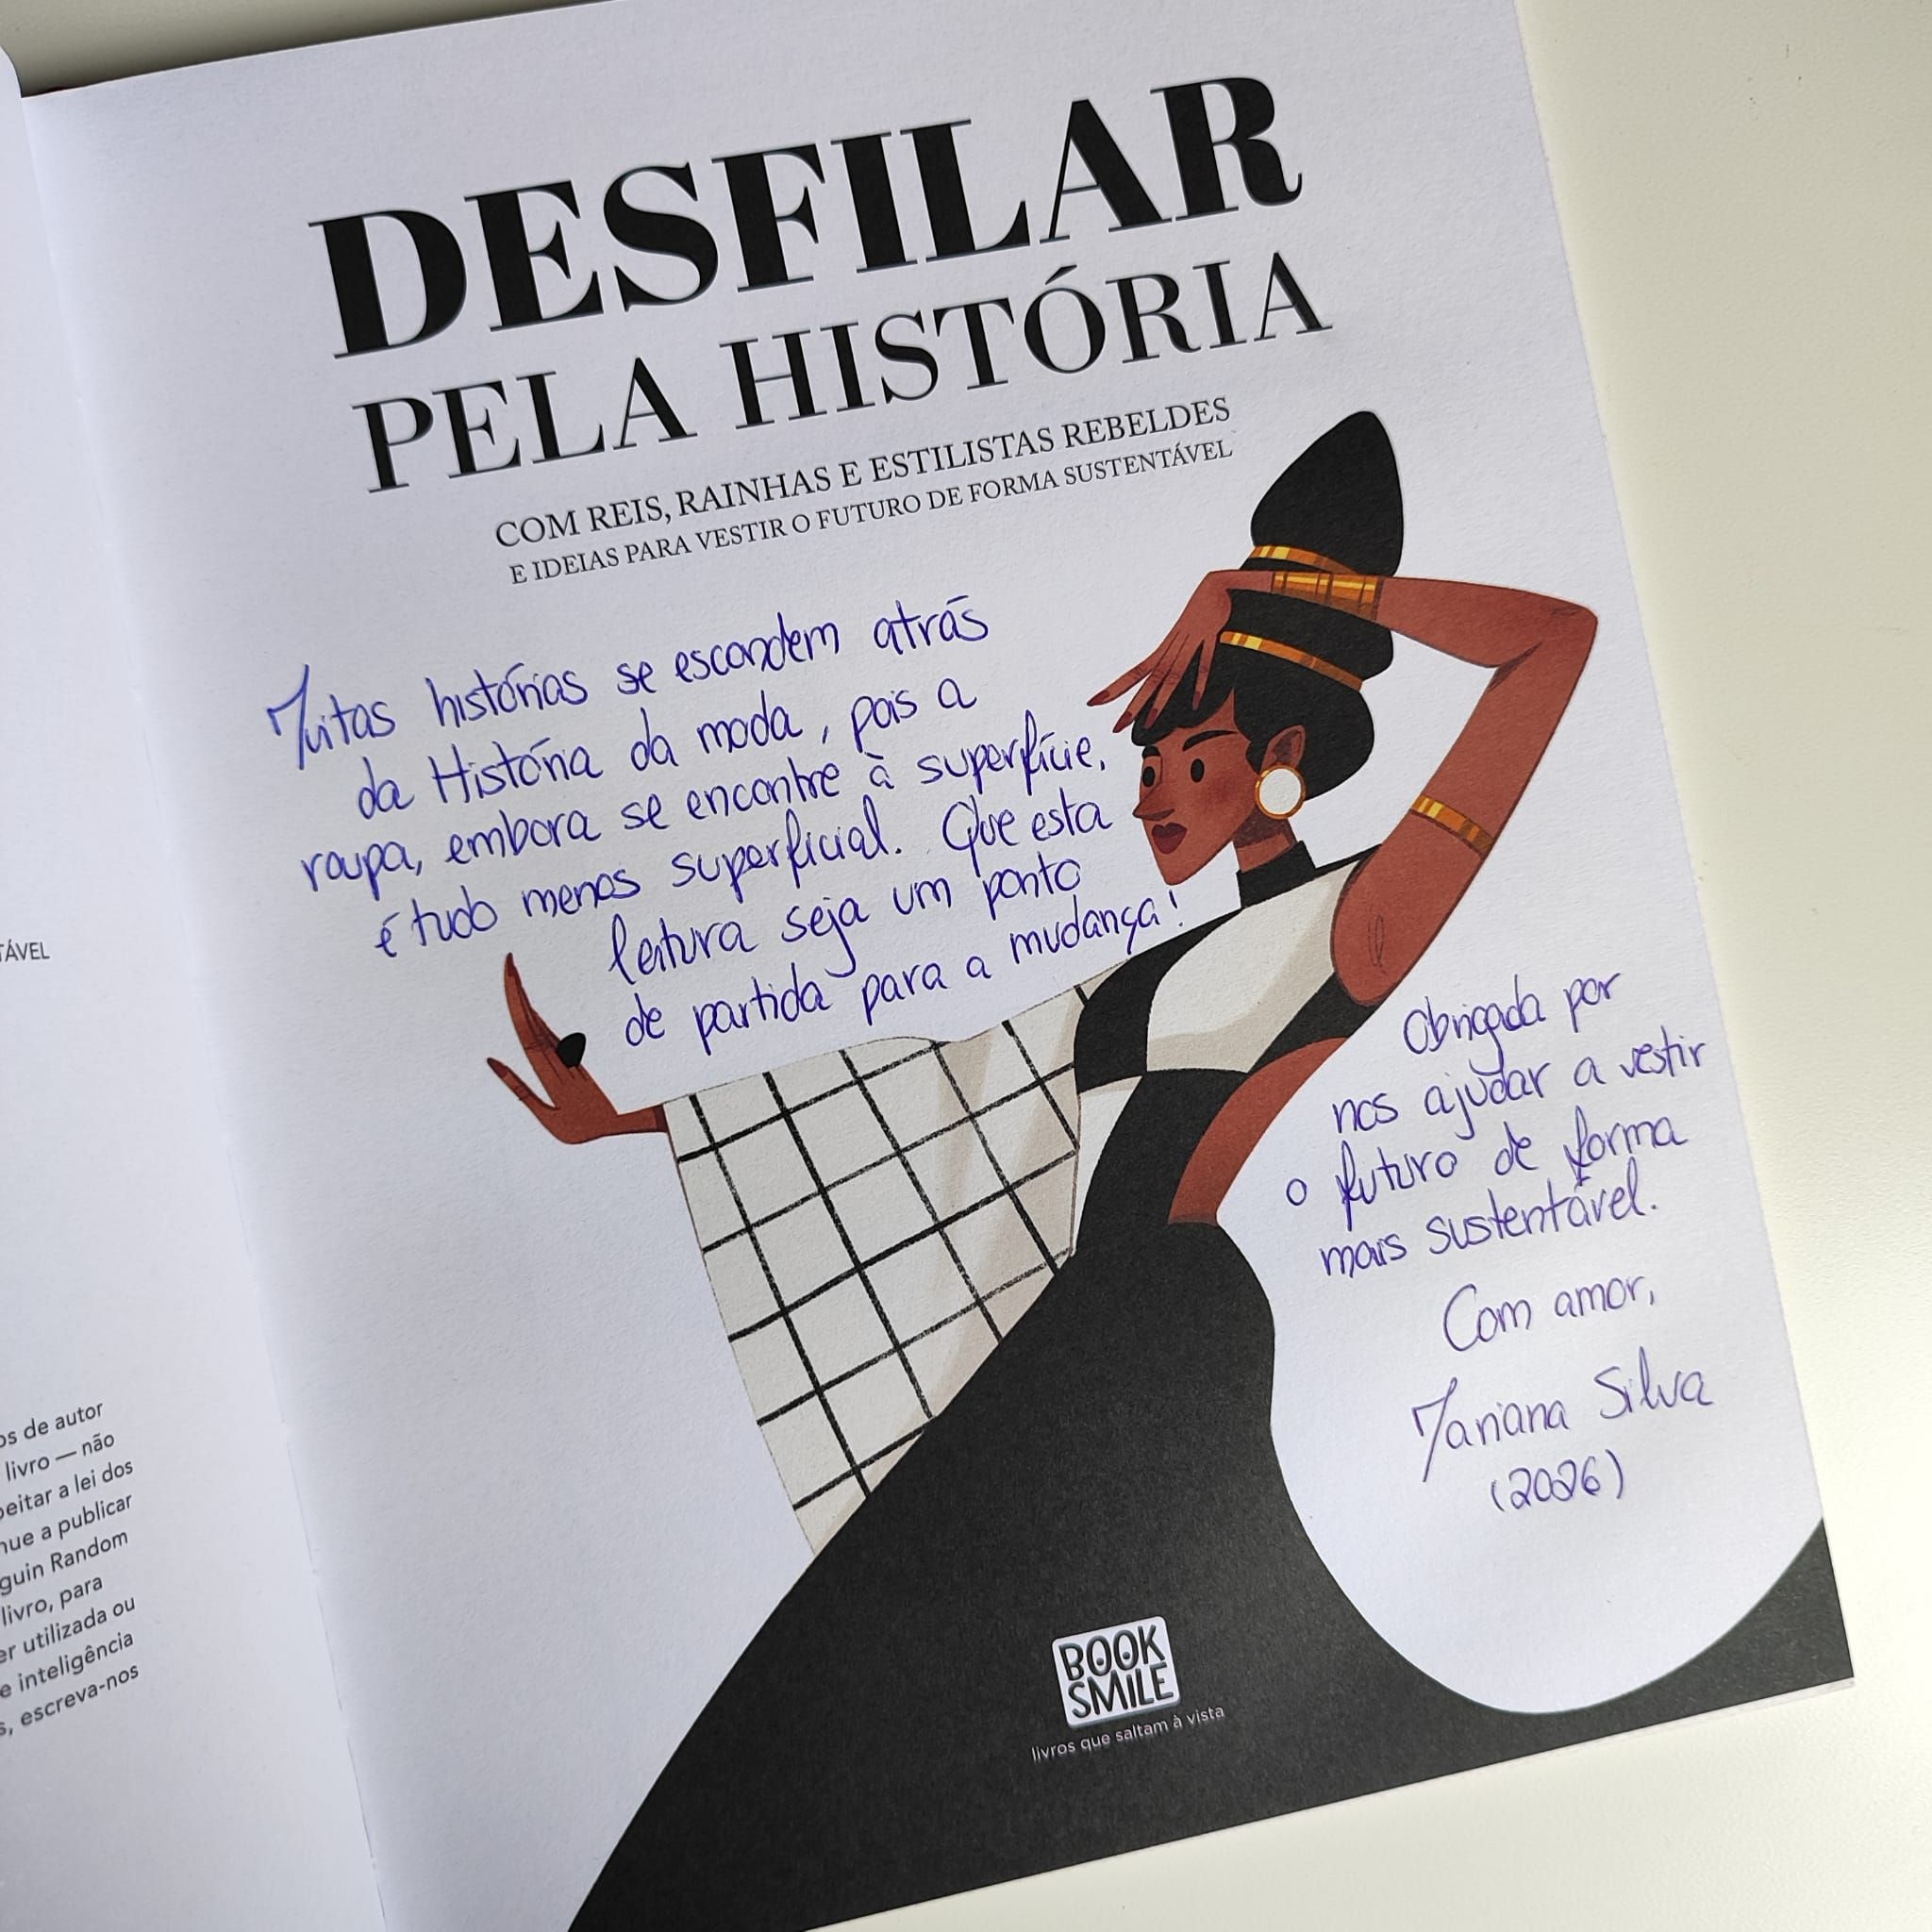 DESFILAR
PELA HISTÓRIA
COM REIS, RAINHAS E ESTILISTAS REBELDES
E IDEIAS PARA VESTIR O FUTURO DE FORMA SUSTENTÁVEL
Muitas histórias se escondem atrás
da História da moda, pois a
roupa, embora se encontre à superfície,
é tudo menos superficial. Que esta
leitura seja um ponto
de partida para a mudança!
Obrigada por
nos ajudar a vestir
o futuro de forma
mais sustentável.
Com amor,
Mariana Silva
(2026)
BOOK
SMILE
livros que saltam à vista
TÁVEL
os de autor
livro — não
peitar a lei dos
nue a publicar
guin Random
livro, para
er utilizada ou
e inteligência
s, escreva-nos